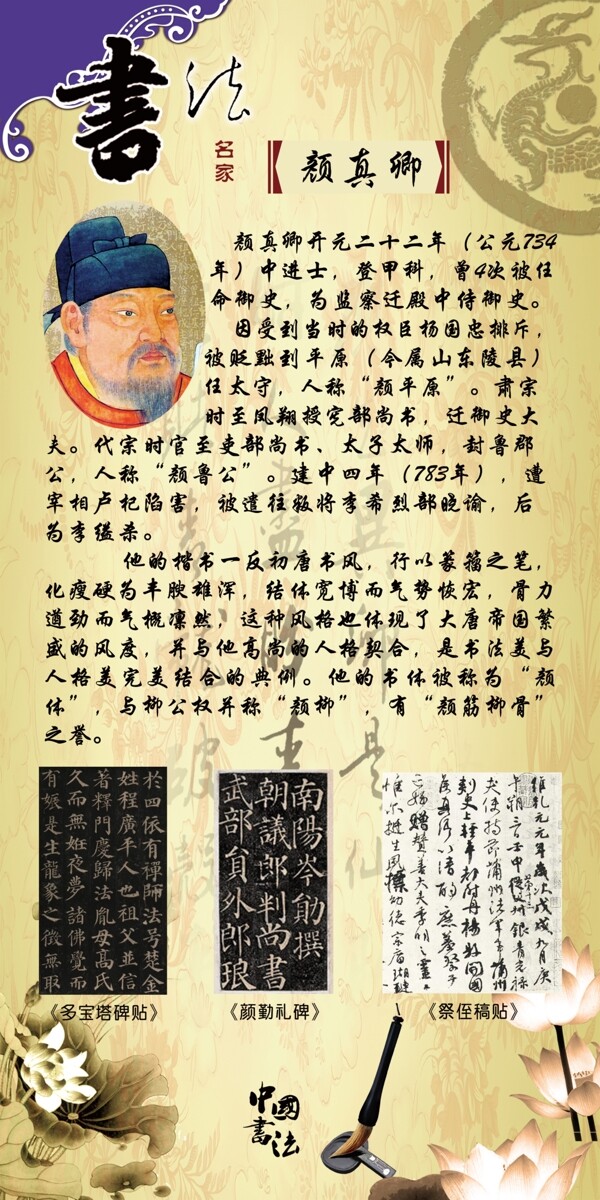 書法
名家
颜真卿
颜真卿开元二十二年（公元734
年）中进士，登甲科，曾4次被任
命御史，为监察迁殿中侍御史。
因受到当时的权臣杨国忠排斥，
被贬黜到平原（今属山东陵县）
任太守，人称“颜平原”。肃宗
时至凤翔授宪部尚书，迁御史大
夫。代宗时官至吏部尚书、太子太师，封鲁郡
公，人称“颜鲁公”。建中四年（783年），遭
宰相卢杞陷害，被遣往叛将李希烈部晓谕，后
为李缢杀。
他的楷书一反初唐书风，行以篆籀之笔，
化瘦硬为丰腴雄浑，结体宽博而气势恢宏，骨力
遒劲而气概凛然，这种风格也体现了大唐帝国繁
盛的风度，并与他高尚的人格契合，是书法美与
人格美完美结合的典例。他的书体被称为“颜
体”，与柳公权并称“颜柳”，有“颜筋柳骨”
之誉。
於四依有禪師法号楚金
姓程廣平人也祖父並信
著釋門慶歸法胤母高氏
久而無姙夜夢諸佛覺而
有娠是生龍象之徵無取
南陽岑勛撰
朝議郎判尚書
武部員外郎琅
維乾元元年歲次戊戌九月庚
夫使持節蒲州諸軍事蒲州
刺史上輕車都尉丹楊縣開國
侯真卿以清酌庶羞祭于
亡姪贈贊善大夫季明之靈曰
惟爾挺生夙標幼德宗廟瑚璉
《多宝塔碑贴》
《颜勤礼碑》
《祭侄稿贴》
中國
書法